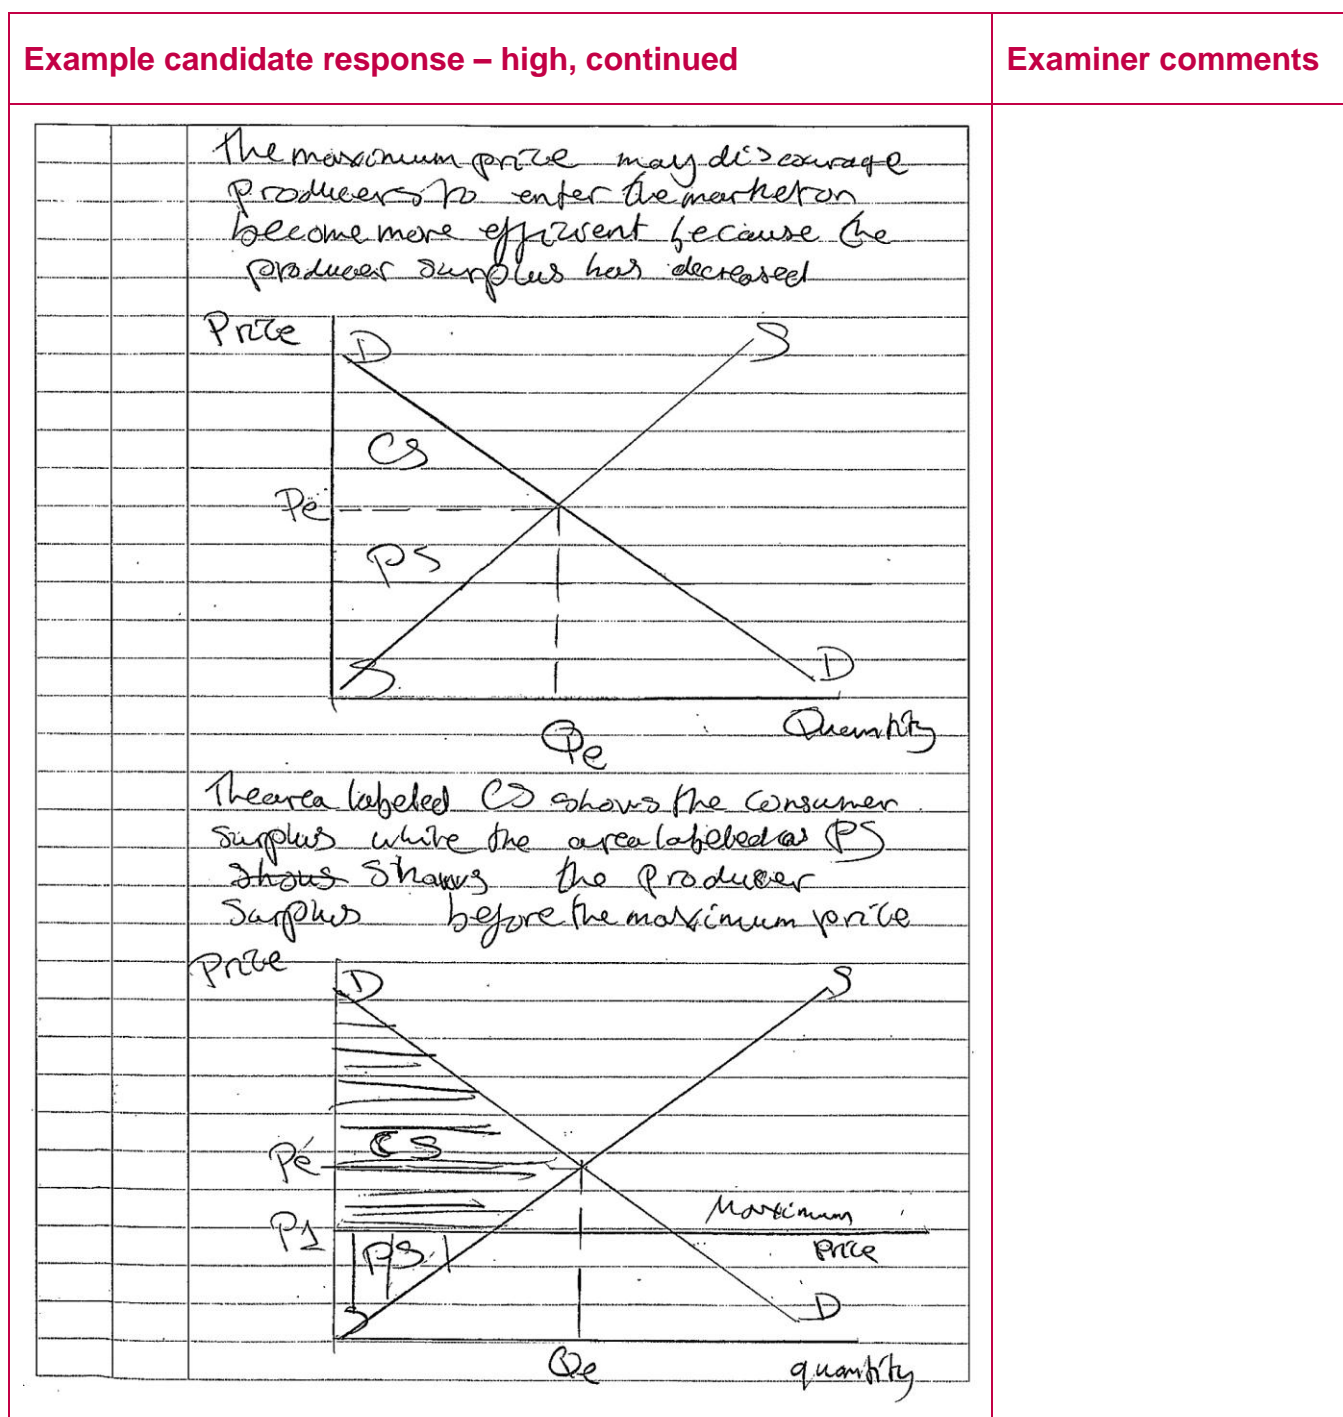 Example candidate response – high, continued
Examiner comments
The maximum price may discourage
producers to enter the market or
become more efficient because the
producer surplus has decreased
Price
D
S
CS
Pe
PS
S
D
Quantity
Qe
The area labeled CS shows the consumer
surplus while the area labeled as PS
shows shows the producer
surplus before the maximum price
Price
D
S
CS
Pe
Maximum
P1
Price
PS
S
D
Qe
quantity